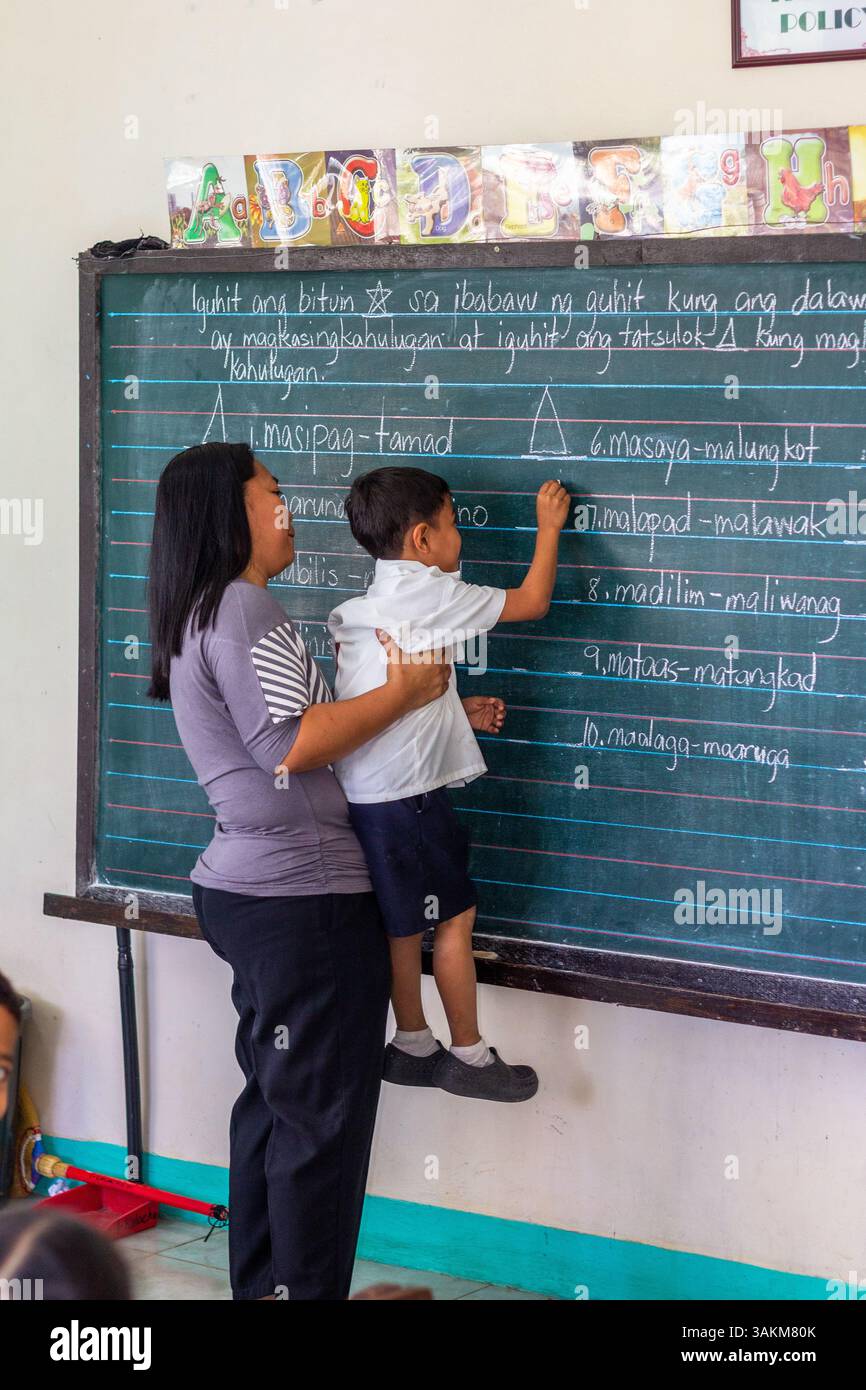 POLICY
A a B b C D E F G g H h
Iguhit ang bituin ☆ sa ibabaw ng guhit kung ang
ay magkasingkahulugan at iguhit ang tatsulok △ kung
kahulugan.
1. masipag - tamad
6. masaya - malungkot
7. malapad - malawak
8. madilim - maliwanag
9. mataas - matangkad
10. maalaga - maaruga
alamy
Image ID: 3AKM80K
www.alamy.com